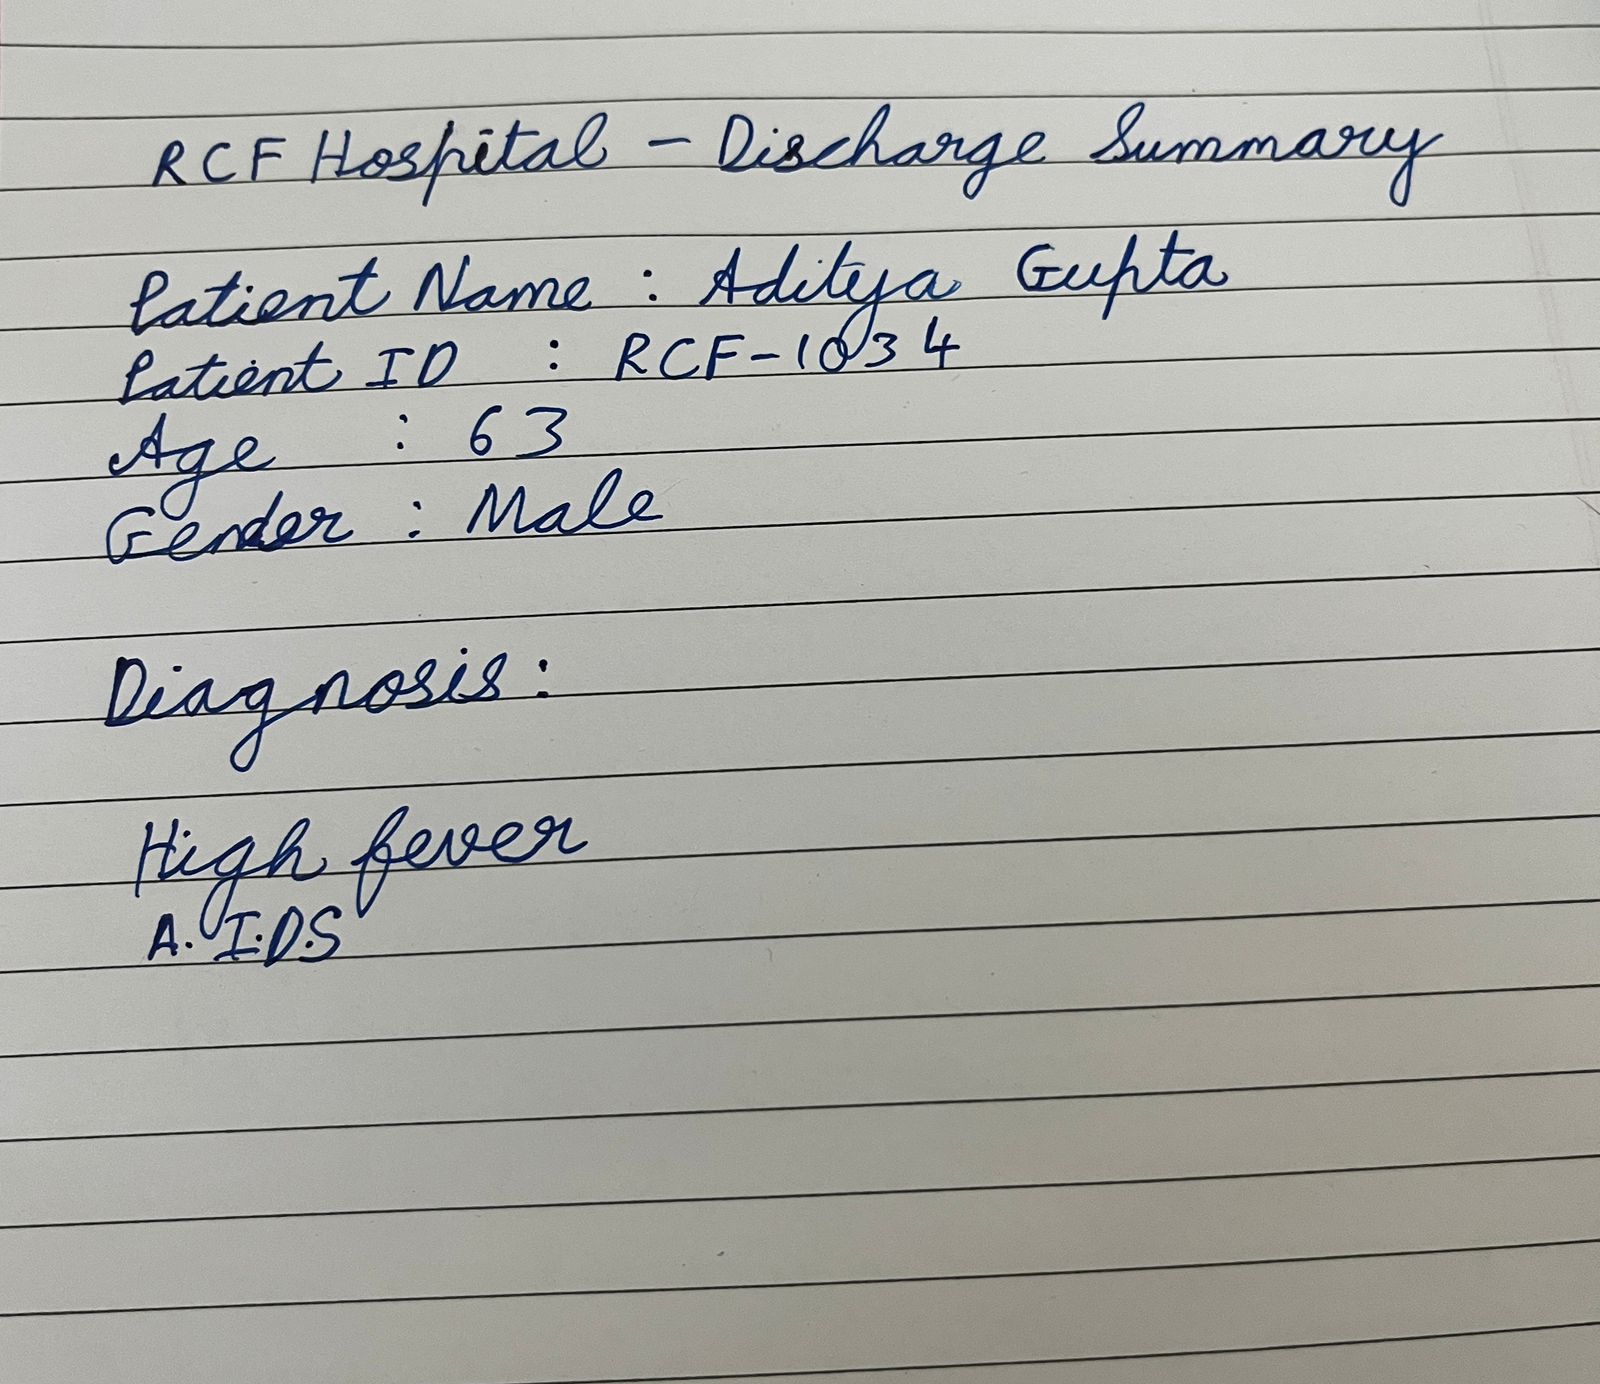 RCF Hospital - Discharge Summary
Patient Name : Aditya Gupta
Patient ID : RCF-1034
Age : 63
Gender : Male
Diagnosis :
High fever
A.I.D.S